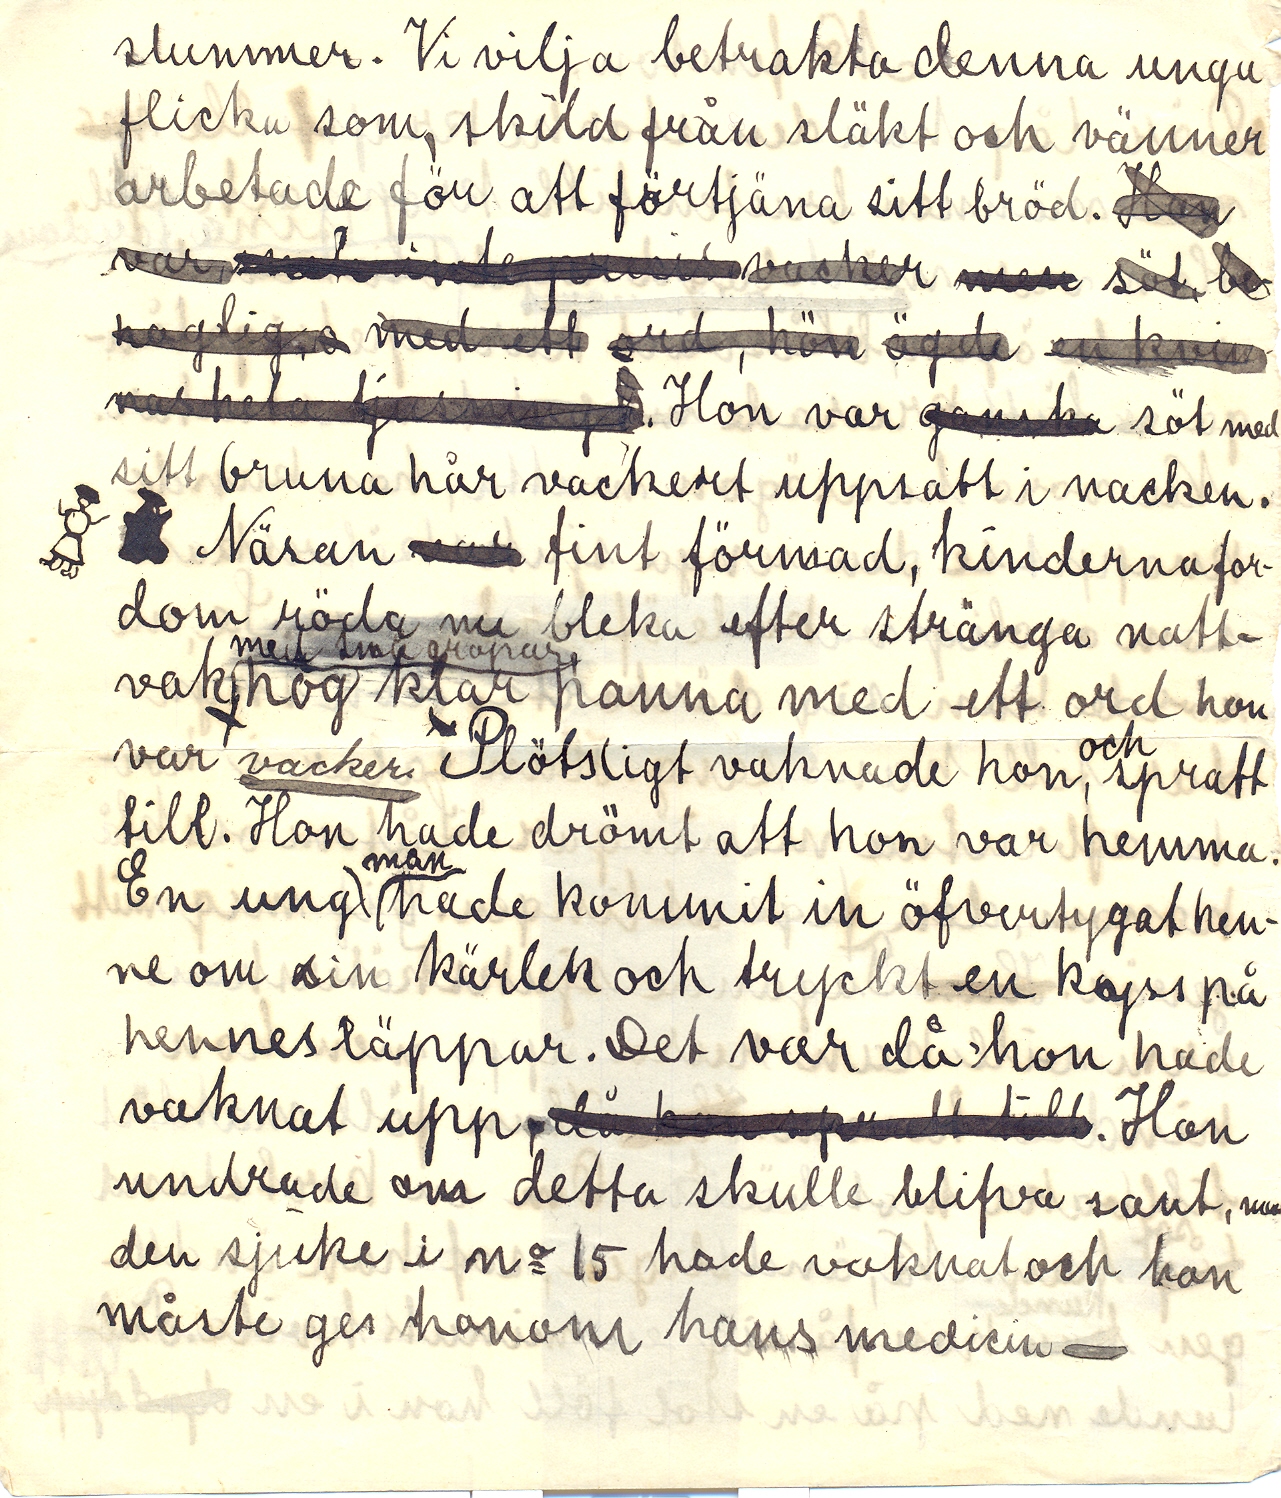 slummer. Vi vilja betrakta denna unga
flicka som, skild från släkt och vänner
arbetade för att förtjäna sitt bröd. Hon
var, inte precis vacker men söt, be-
haglig, med ett ord, hon ägde en kvin-
nas hela tjusning. Hon var ganska söt med
sitt bruna hår vackert uppsatt i nacken.
Näsan var fint formad, kinderna for-
dom röda nu bleka efter stränga natt-
med små gropar,
vak, hög klar panna med ett ord hon
var vacker. Plötsligt vaknade hon, och spratt
till. Hon hade drömt att hon var hemma.
En ung man hade kommit in öfvertygat hen-
ne om sin kärlek och tryckt en kyss på
hennes läppar. Det var då hon hade
vaknat upp, då hon spratt till. Hon
undrade om detta skulle blifva sant, men
den sjuke i nº 15 hade vaknat och hon
måste ges honom hans medicin —